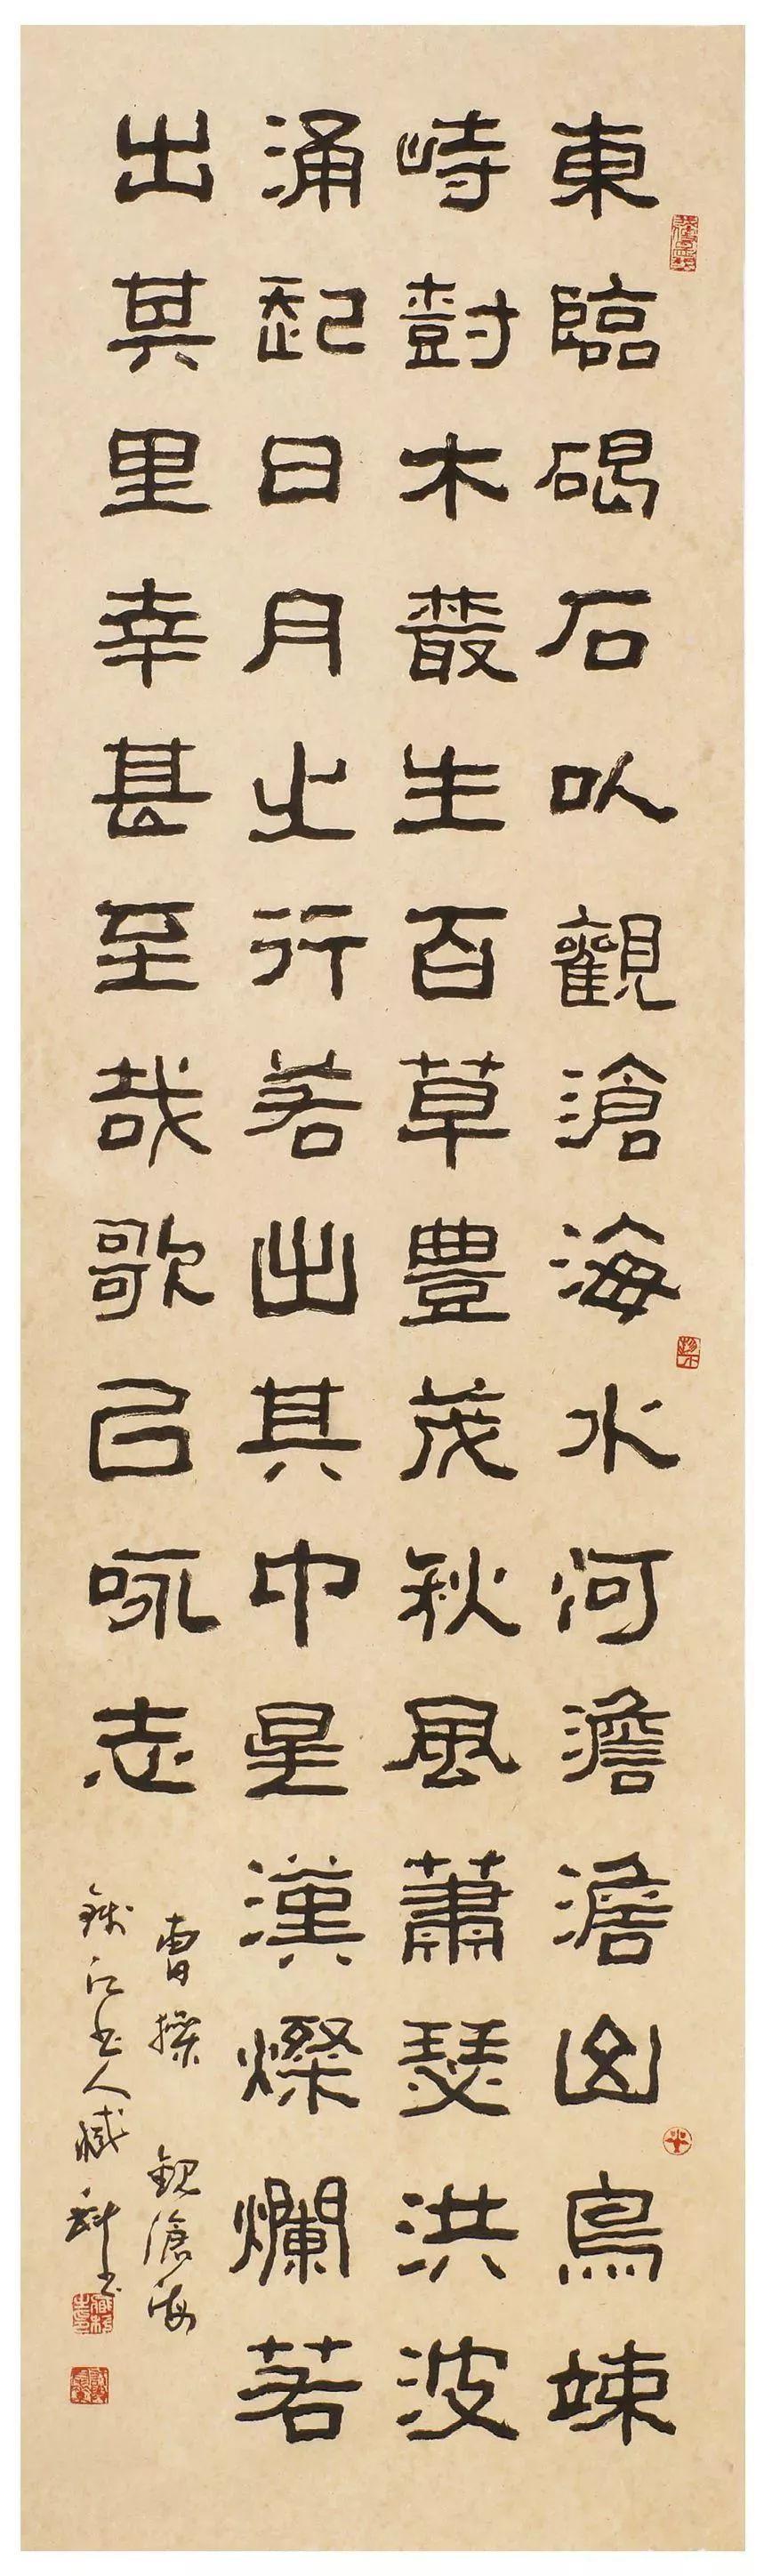 東臨碣石以觀滄海水河澹澹山鳥竦
峙樹木叢生百草豐茂秋風蕭瑟洪波
涌起日月之行若出其中星漢燦爛若
出其里幸甚至哉歌㠯咏志
曹操 觀滄海
錢江書人臧科書